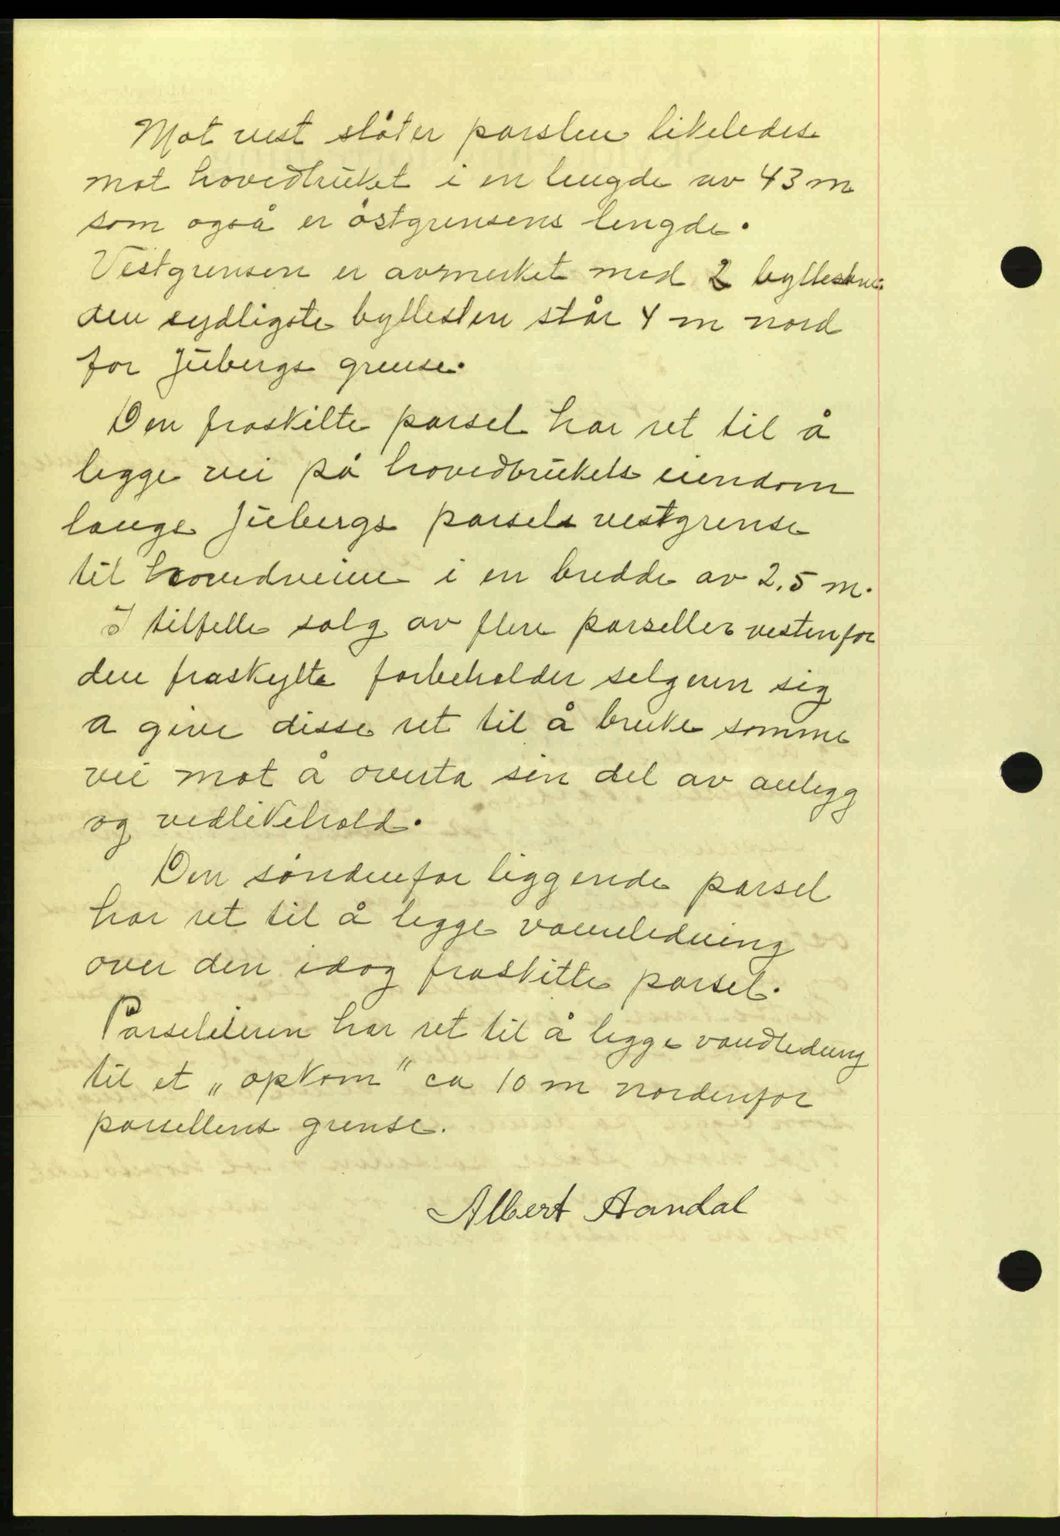 Mot vest støter parslen likeledes
mot hovedbruket i en lengde av 43 m
som også er østgrensens lengde.
Vestgrensen er avmerket med 2 byllestene
den sydligste byllesten står 4 m nord
for Jubergs grense.
Den fraskilte parsel har ret til å
legge vei på hovedbrukets eiendom
langs Jubergs parsels vestgrense
til hovedveien i en bredde av 2.5 m.
I tilfelle salg av flere parseller vestenfor
den fraskylte forbeholder selgeren sig
a give disse ret til å bruke samme
vei mot å overta sin del av anlegg
og vedlikehold.
Den søndenfor liggende parsel
har ret til å legge vannledning
over den idag fraskilte parsel.
Parseleieren har ret til å legge vandledning
til et „opkom“ ca 10 m nordenfor
parsellens grense.
Albert Aandal